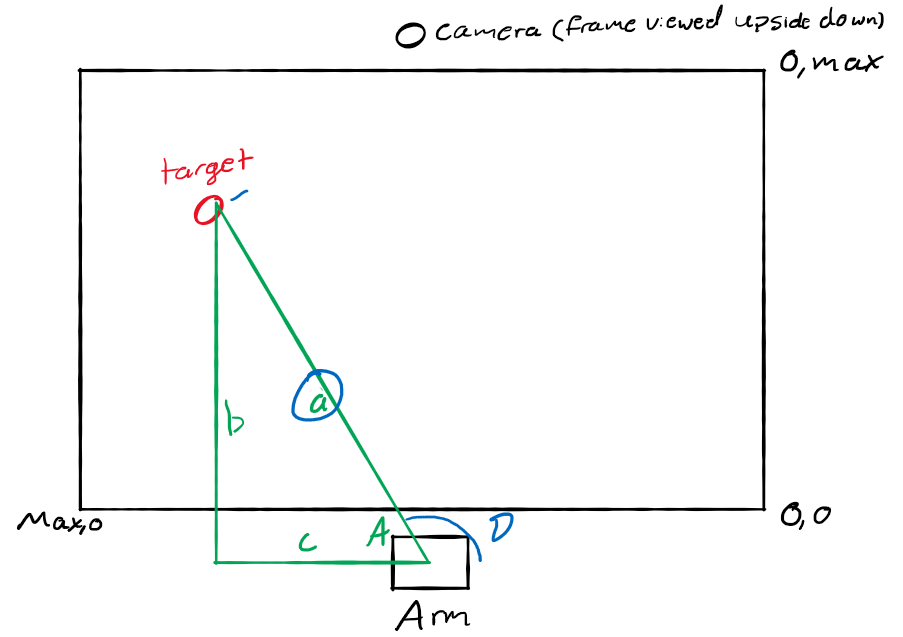 Camera (frame viewed upside down)
0, max
target
a
b
Max,0
0,0
A
D
c
Arm